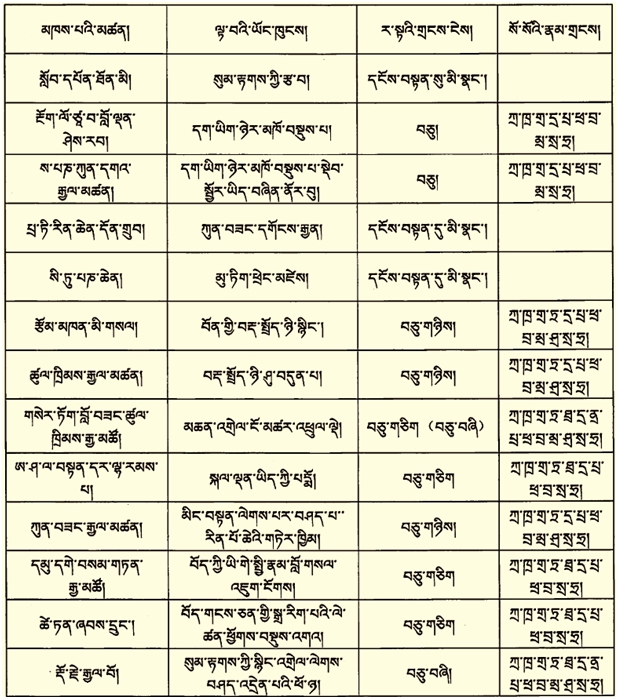 མཁས་པའི་མཚན།
ལྟ་བའི་ཡོང་ཁུངས།
ར་སྟའི་གྲངས་ངེས།
སོ་སོའི་རྣམ་གྲངས།
སློབ་དཔོན་ཐོན་མི།
སུམ་རྟགས་ཀྱི་རྩ་བ།
དངོས་བསྟན་སུ་མི་སྣང་།
རྔོག་ལོ་ཙཱ་བ་བློ་ལྡན་
ཤེས་རབ།
དག་ཡིག་ཉེར་མཁོ་བསྡུས་པ།
བཅུ།
ཀྲ་ཁྲ་གྲ་དྲ་པྲ་ཕྲ་བྲ་
མྲ་སྲ་ཧྲ།
ས་པཎ་ཀུན་དགའ་
རྒྱལ་མཚན།
དག་ཡིག་ཉེར་མཁོ་བསྡུས་པ་སྡེབ་
སྦྱོར་ཡིད་བཞིན་ནོར་བུ།
བཅུ།
ཀྲ་ཁྲ་གྲ་དྲ་པྲ་ཕྲ་བྲ་
མྲ་སྲ་ཧྲ།
པྲ་ཏི་རིན་ཆེན་དོན་གྲུབ།
ཀུན་བཟང་དགོངས་རྒྱན།
དངོས་བསྟན་དུ་མི་སྣང་།
སི་ཏུ་པཎ་ཆེན།
མུ་ཏིག་ཕྲེང་མཛེས།
དངོས་བསྟན་དུ་མི་སྣང་།
རྩོམ་མཁན་མི་གསལ།
བོན་གྱི་བརྡ་སྤྲོད་ཉི་སྙིང་།
བཅུ་གཉིས།
ཀྲ་ཁྲ་གྲ་ཏྲ་དྲ་པྲ་ཕྲ་
བྲ་མྲ་ཤྲ་སྲ་ཧྲ།
ཚུལ་ཁྲིམས་རྒྱལ་མཚན།
བརྡ་སྤྲོད་ཉི་ཤུ་བདུན་པ།
བཅུ་གཉིས།
ཀྲ་ཁྲ་གྲ་ཏྲ་དྲ་པྲ་ཕྲ་
བྲ་མྲ་ཤྲ་སྲ་ཧྲ།
གསེར་ཏོག་བློ་བཟང་ཚུལ་
ཁྲིམས་རྒྱ་མཚོ།
མཆན་འགྲེལ་ངོ་མཚར་འཕྲུལ་ལྡེ།
བཅུ་གཅིག (བཅུ་བཞི)
ཀྲ་ཁྲ་གྲ་ཏྲ་ཐྲ་དྲ་ནྲ་
པྲ་ཕྲ་བྲ་མྲ་ཤྲ་སྲ་ཧྲ།
ཨ་ཤ་ལ་བསྟན་དར་ལྷ་རམས་
པ།
སྐལ་ལྡན་ཡིད་ཀྱི་པདྨོ།
བཅུ་གཅིག
ཀྲ་ཁྲ་གྲ་ཏྲ་ཐྲ་དྲ་པྲ་
ཕྲ་བྲ་སྲ་ཧྲ།
ཀུན་བཟང་རྒྱལ་མཚན།
མིང་བསྟན་ལེགས་པར་བཤད་པ་་
རིན་པོ་ཆེའི་གཏེར་ཁྱིམ།
བཅུ་གཉིས།
ཀྲ་ཁྲ་གྲ་ཏྲ་དྲ་པྲ་ཕྲ་
བྲ་མྲ་ཤྲ་སྲ་ཧྲ།
དམུ་དགེ་བསམ་གཏན་
རྒྱ་མཚོ།
བོད་ཀྱི་ཡི་གེ་སྤྱི་རྣམ་བློ་གསལ་
འཇུག་ངོགས།
བཅུ་གཅིག
ཀྲ་ཁྲ་གྲ་ཏྲ་ཐྲ་དྲ་པྲ་
ཕྲ་བྲ་སྲ་ཧྲ།
ཚེ་ཏན་ཞབས་དྲུང་།
བོད་གངས་ཅན་གྱི་སྒྲ་རིག་པའི་ལེ་
ཚན་ཕྱོགས་བསྡུས་འགའ།
བཅུ་གཅིག
ཀྲ་ཁྲ་གྲ་ཏྲ་ཐྲ་དྲ་པྲ་
ཕྲ་བྲ་སྲ་ཧྲ།
རྡོ་རྗེ་རྒྱལ་པོ།
སུམ་རྟགས་ཀྱི་སྙིང་འགྲེལ་ལེགས་
བཤད་འདྲེན་པའི་ཕོ་ཉ།
བཅུ་བཞི།
ཀྲ་ཁྲ་གྲ་ཏྲ་ཐྲ་དྲ་ནྲ་
པྲ་ཕྲ་བྲ་མྲ་ཤྲ་སྲ་ཧྲ།